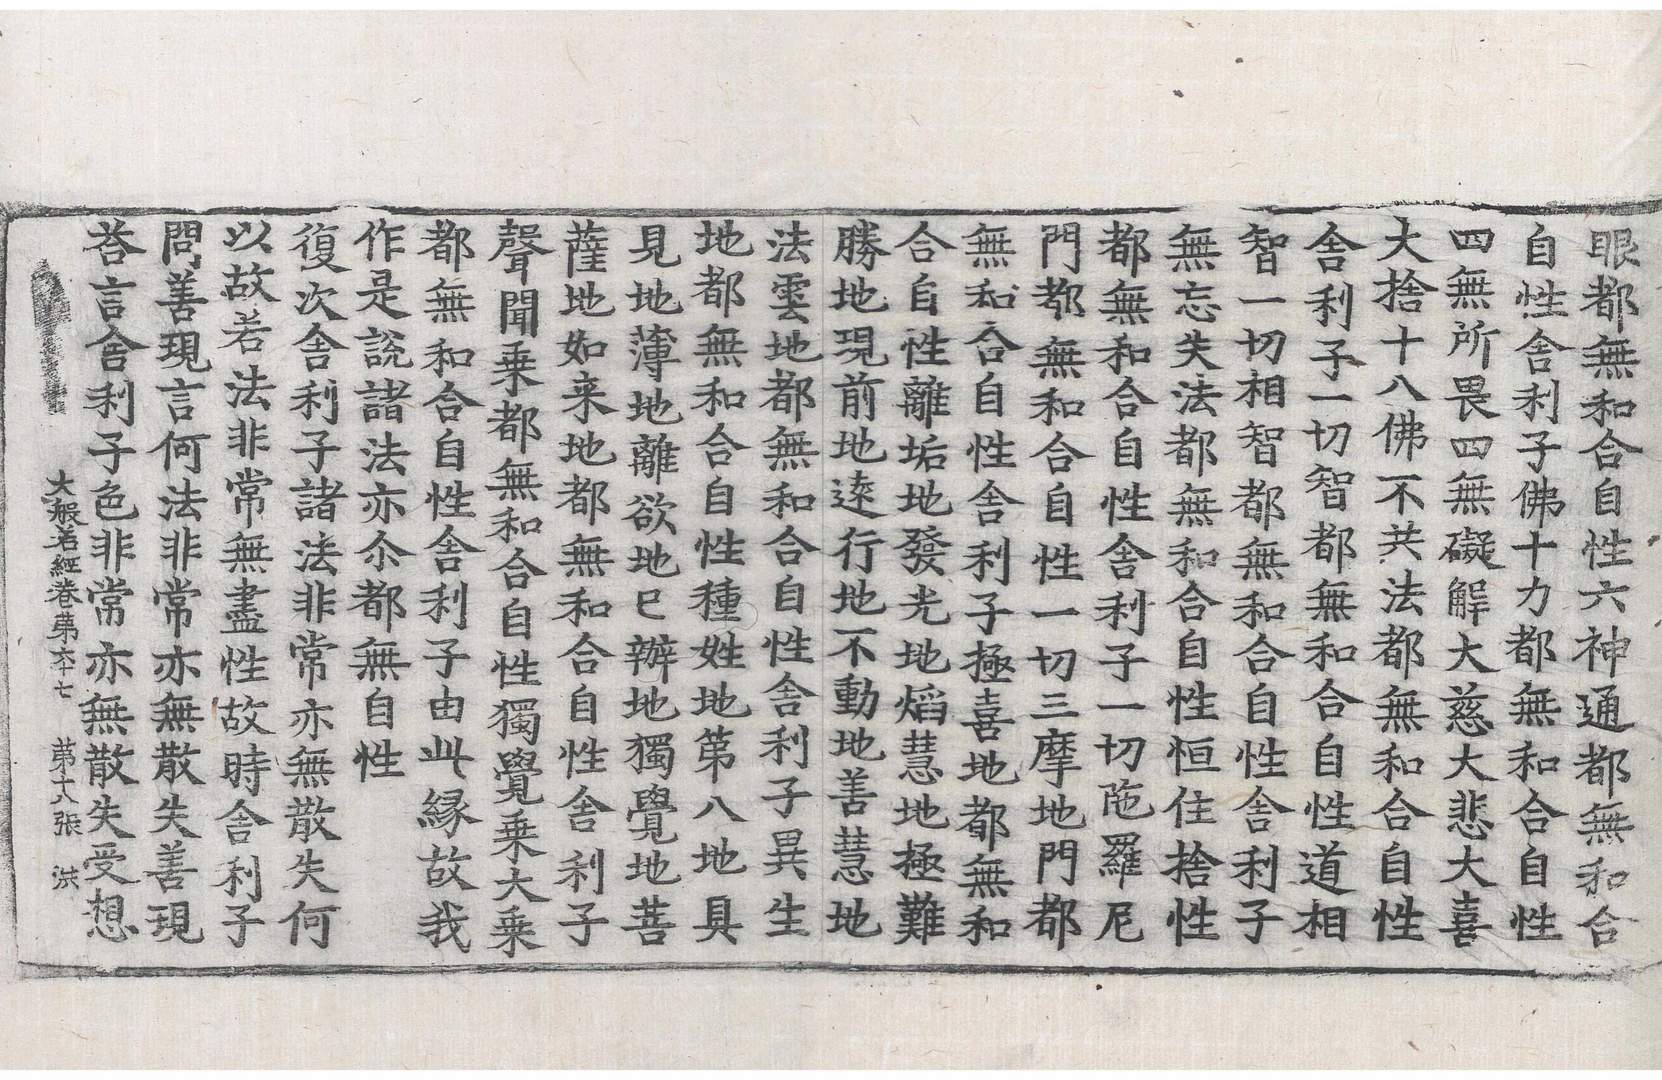 眼都無和合自性六神通都無和合
自性舍利子佛十力都無和合自性
四無所畏四無礙解大慈大悲大喜
大捨十八佛不共法都無和合自性
舍利子一切智都無和合自性道相
智一切相智都無和合自性舍利子
無忘失法都無和合自性恒住捨性
都無和合自性舍利子一切陁羅尼
門都無和合自性一切三摩地門都
無和合自性舍利子極喜地都無和
合自性離垢地發光地焰慧地極難
勝地現前地遠行地不動地善慧地
法雲地都無和合自性舍利子異生
地都無和合自性種姓地第八地具
見地薄地離欲地已辦地獨覺地菩
薩地如来地都無和合自性舍利子
聲聞乗都無和合自性獨覺乗大乗
都無和合自性舍利子由此縁故我
作是說諸法亦尒都無自性
復次舍利子諸法非常亦無散失何
以故若法非常無盡性故時舍利子
問善現言何法非常亦無散失善現
荅言舍利子色非常亦無散失受想
大般若經卷苐六十七　苐十八張　洪